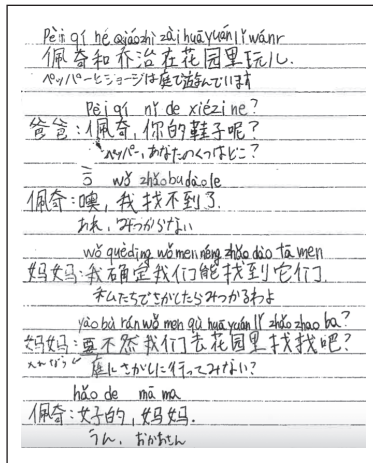 Pèi qí hé qiáozhì zài huāyuán lǐ wánr
佩奇和乔治在花园里玩儿.
ペッパーとジョージは庭で遊んでいます
Pèi qí nǐ de xiézi ne?
爸爸:佩奇,你的鞋子呢?
ペッパー,あなたのくつはどこ?
wǒ zhǎobudàole
佩奇:噢,我找不到了.
あれ,みつからない
wǒ quèdìng wǒmen néng zhǎo dào tā men
妈妈:我确定我们能找到它们.
私たちでさがしたらみつかるわよ
yào bù rán wǒ men qù huāyuán lǐ zhǎo zhao ba?
妈妈:要不然我们去花园里找找吧?
庭にさがしに行ってみない?
hǎo de mā ma
佩奇:好的,妈妈.
うん,おかあさん